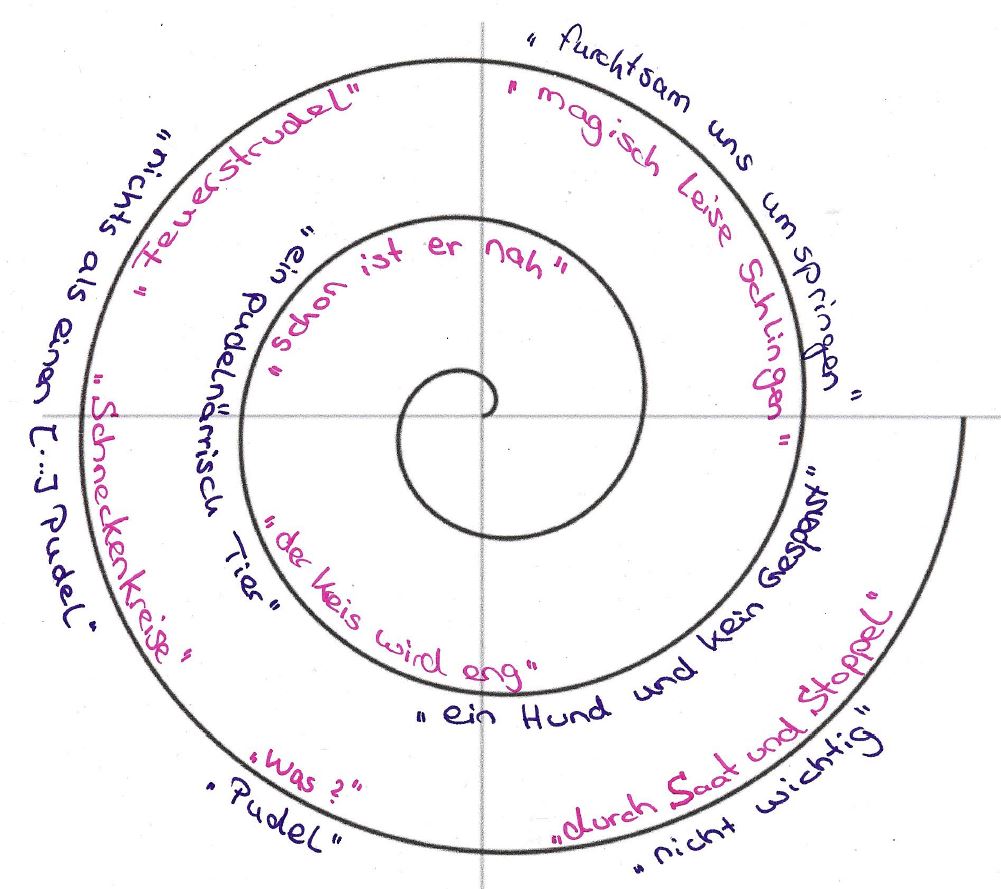 „durch Saat und Stoppel“
„nicht wichtig“
„Was?“
„Pudel“
„Schneckenkreise“
„nichts als einen [...] Pudel“
„Feuerstrudel“
„magisch leise Schlingen“
„furchtsam uns umspringen“
„ein Hund und kein Gespenst“
„der Keis wird eng“
„ein pudelnärrisch Tier“
„schon ist er nah“